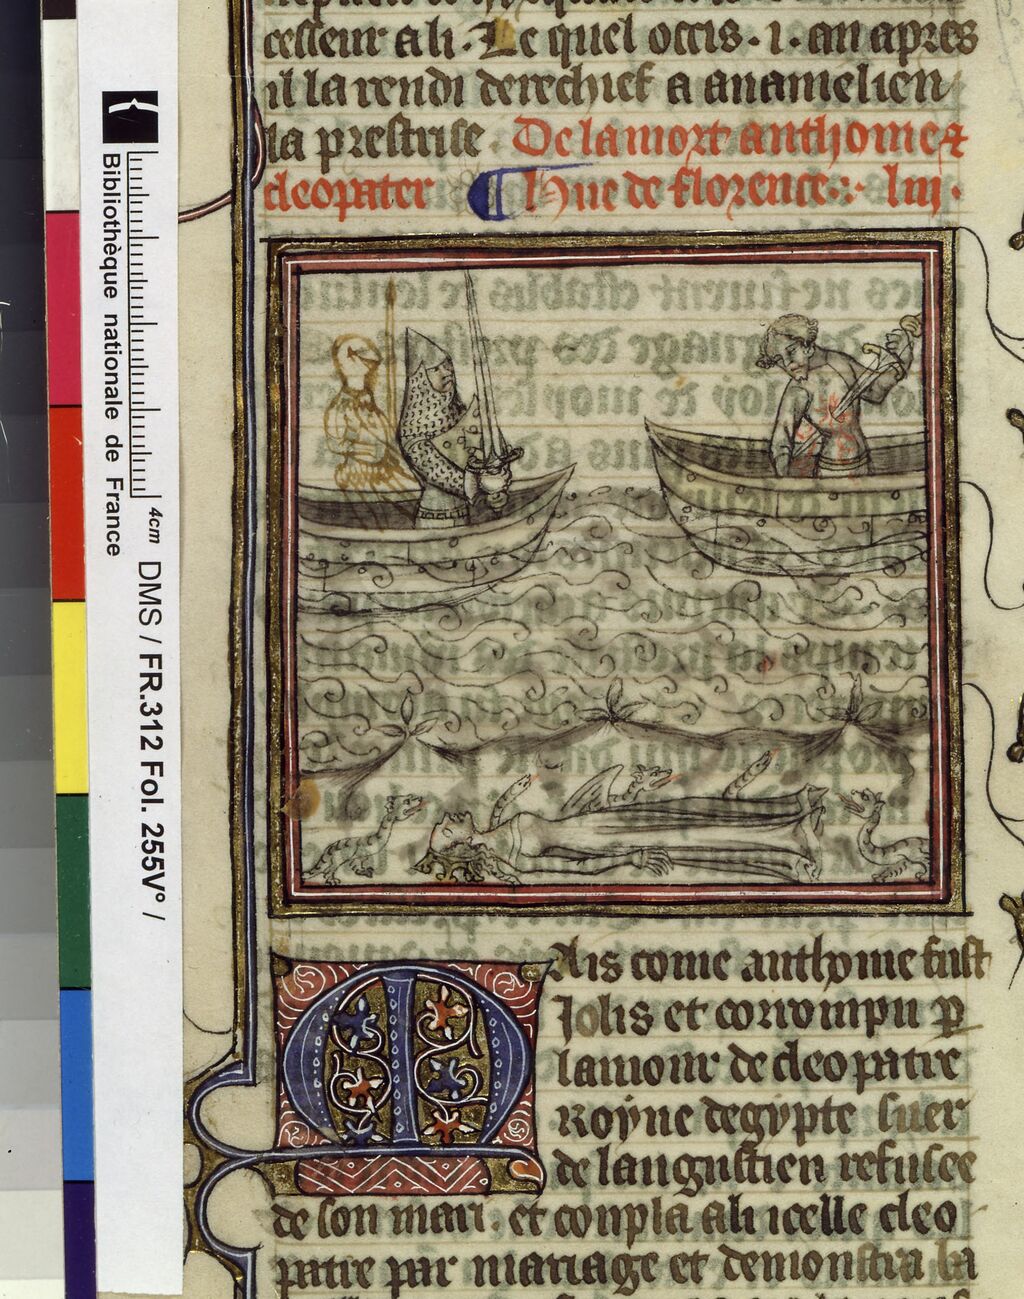 cesseur a li. Le quel occis .i. an apres
il la rendi derechief a anamelien
la prestrise. De la mort anthoine &
cleopater ¶ Hue de florence. liij.
Ais come anthoine fust
Jolis et corrompu p
lamour de cleopatre
Royne degypte suer
de laugustien refusee
de son mari. et coupla a li icelle cleo
patre par mariage et demonstra la
Bibliothèque nationale de France
4cm
DMS / FR.312 Fol. 255V° /